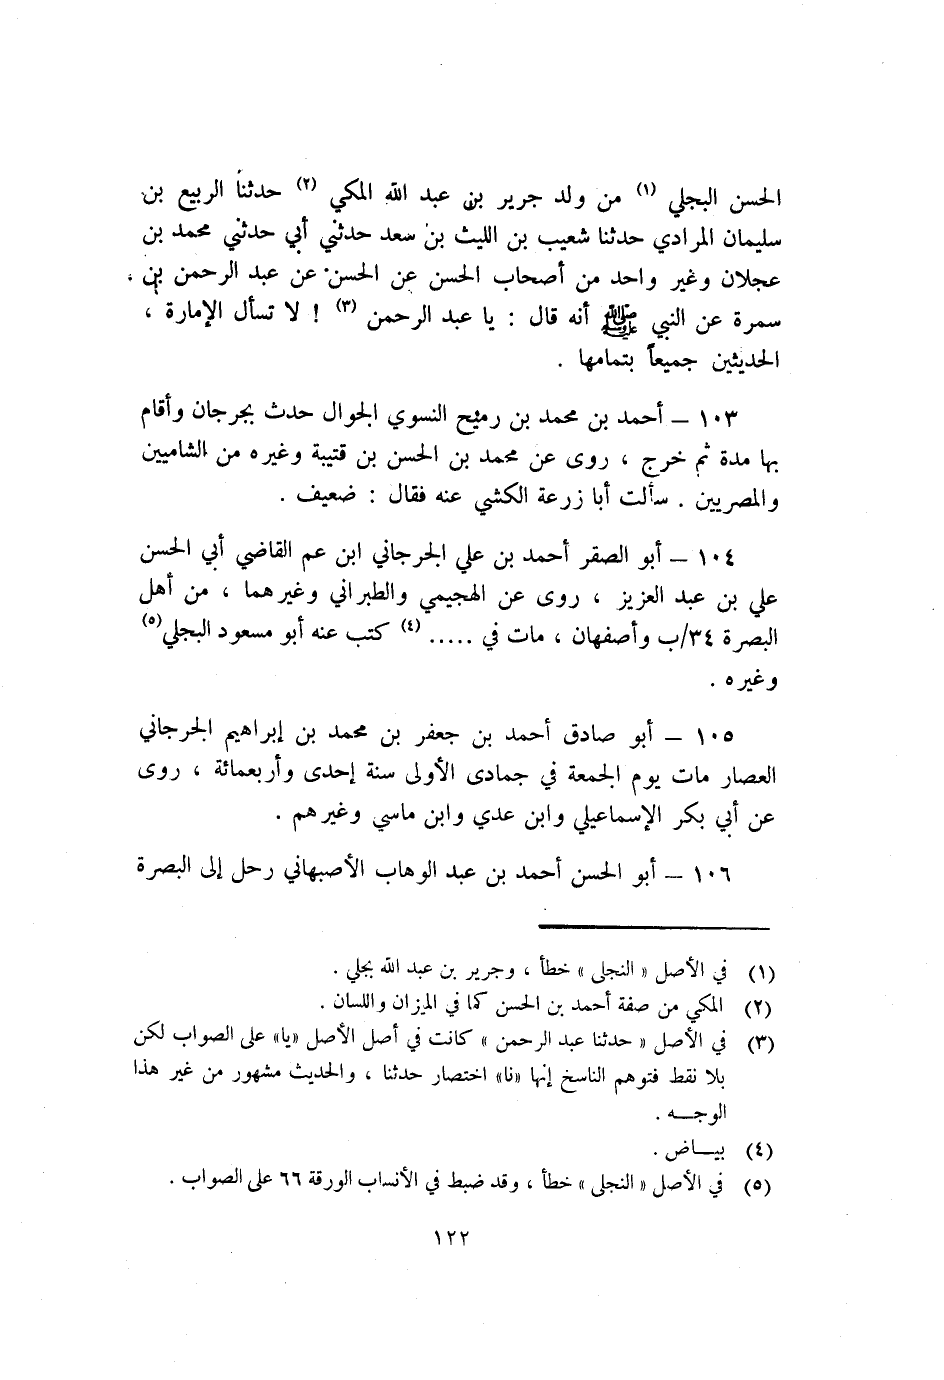 الحسن البجلي (١) من ولد جرير بن عبد الله المكي (٢) حدثنا الربيع بن
سليمان المرادي حدثنا شعيب بن الليث بن سعد حدثني أبي حدثني محمد بن
عجلان وغير واحد من أصحاب الحسن عن الحسن عن عبد الرحمن بن
سمرة عن النبي ﷺ أنه قال : يا عبد الرحمن (٣) ! لا تسأل الإمارة ،
الحديثين جميعاً بتمامها .
١٠٣ – أحمد بن محمد بن رميح النسوي الجوال حدث بجرجان وأقام
بها مدة ثم خرج ، روى عن محمد بن الحسن بن قتيبة وغيره من الشاميين
والمصريين . سألت أبا زرعة الكشي عنه فقال : ضعيف .
١٠٤ – أبو الصقر أحمد بن علي الجرجاني ابن عم القاضي أبي الحسن
علي بن عبد العزيز ، روى عن الهجيمي والطبراني وغيرهما ، من أهل
البصرة ٣٤/ب وأصفهان ، مات في ..... (٤) كتب عنه أبو مسعود البجلي(٥)
وغيره .
١٠٥ – أبو صادق أحمد بن جعفر بن محمد بن إبراهيم الجرجاني
العصار مات يوم الجمعة في جمادى الأولى سنة إحدى وأربعمائة ، روى
عن أبي بكر الإسماعيلي وابن عدي وابن ماسي وغيرهم .
١٠٦ – أبو الحسن أحمد بن عبد الوهاب الأصبهاني رحل إلى البصرة
(١) في الأصل « النجلى » خطأ ، وجرير بن عبد الله بجلي .
(٢) المكي من صفة أحمد بن الحسن كما في الميزان واللسان .
(٣) في الأصل « حدثنا عبد الرحمن » كانت في أصل الأصل «يا» على الصواب لكن
بلا نقط فتوهم الناسخ إنها «نا» اختصار حدثنا ، والحديث مشهور من غير هذا
الوجــه .
(٤) بيــاض .
(٥) في الأصل « النجلى » خطأ ، وقد ضبط في الأنساب الورقة ٦٦ على الصواب .
١٢٢